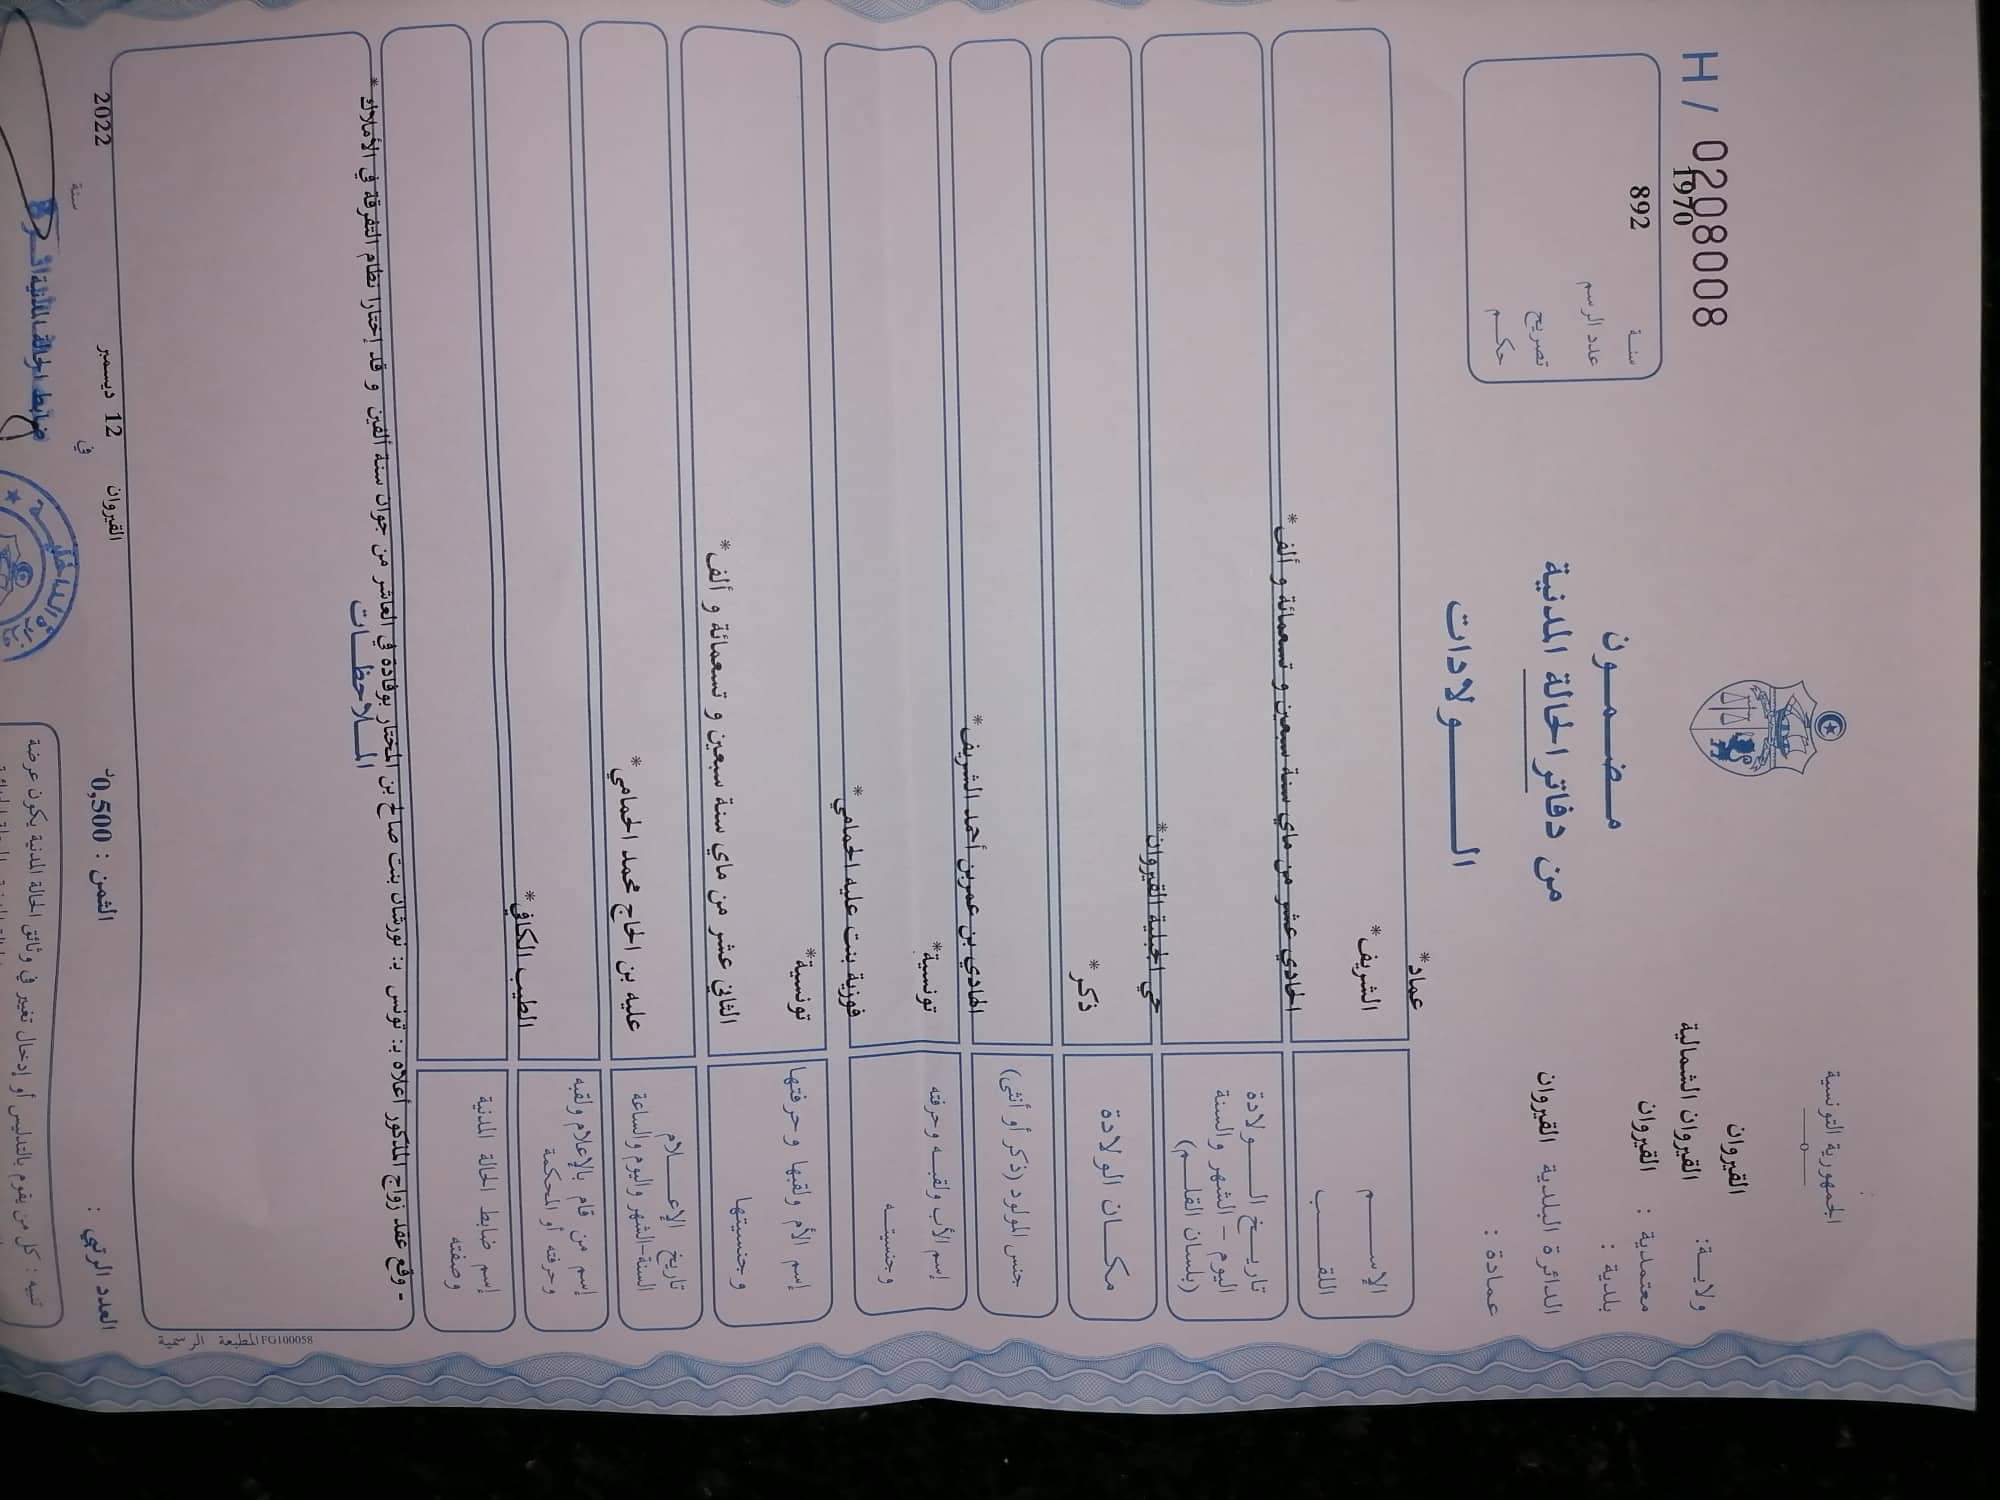 الجمهورية التونسية
ولايـة: القيروان
معتمدية : القيروان الشمالية
بلدية : القيروان
الدائرة البلدية القيروان
عمادة :
H / 0208008
1970
892
سنـة
عدد الرسم
تصريح
حكـم
مـضـمـون
من دفاتر الحالة المدنية
الـــولادات
الإســم
اللقــب
عماد*
الشريف*
تاريـخ الــولادة
اليوم - الشهر والسنة
(بلسان القلـم)
الحادي عشر من ماي سنة سبعين و تسعمائة و ألف*
مكـان الولادة
حي الجبلية القيروان*
جنس المولود (ذكر أو أنثى)
ذكر*
إسم الأب ولقبـه وحرفته
وجنسيتـه
الهادي بن عمربن أحمد الشريف*
تونسية*
إسم الأم ولقبها وحرفتها
وجنسيتها
فوزية بنت عليه الحمامي*
تونسية*
تاريخ الإعــلام
السنة-الشهر واليوم والساعة
الثاني عشر من ماي سنة سبعين و تسعمائة و ألف*
إسم من قام بالإعلام ولقبه
وحرفته أو المحكمة
عليه بن الحاج محمد الحمامي*
إسم ضابط الحالة المدنية
وصفته
الطيب الكافي*
المـلاحظـات
- وقع عقد زواج المذكور أعلاه بـ: تونس بـ: نورشان بنت صالح بن المختار بوقادة في العاشر من جوان سنة ألفين و قد إختارا نظام التفرقة في الأملاك*
FG100058 المطبعة الرسمية
العدد الرتبي :
الثمن : 0,500د
القيروان في 12 ديسمبر سنة 2022
ضابط الحالة المدنية
تنبيه : كل من يقوم بالتدليس أو إدخال تغيير في وثائق الحالة المدنية يكون عرضة